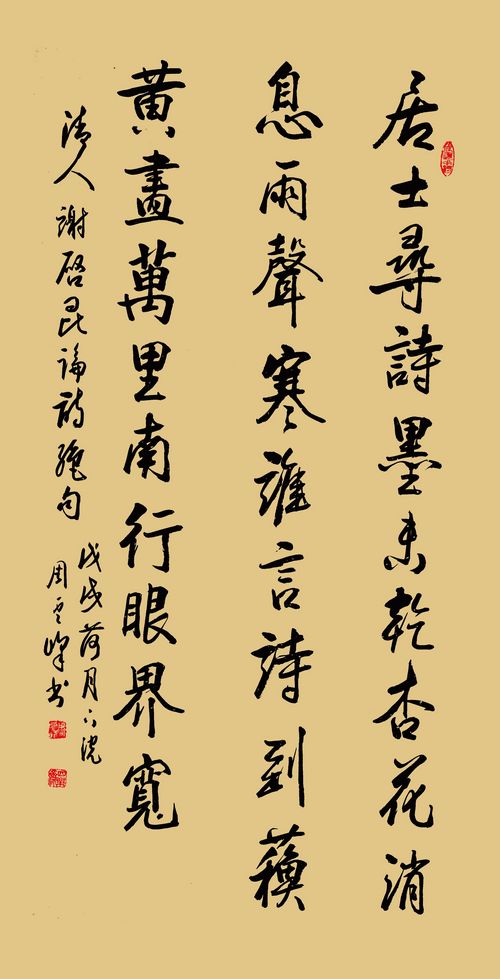 居士尋詩墨未乾杏花消
息雨聲寒誰言詩到蘓
黄盡萬里南行眼界寬
清人謝啓昆論詩絶句
戊戌荷月下浣
周雲峰书